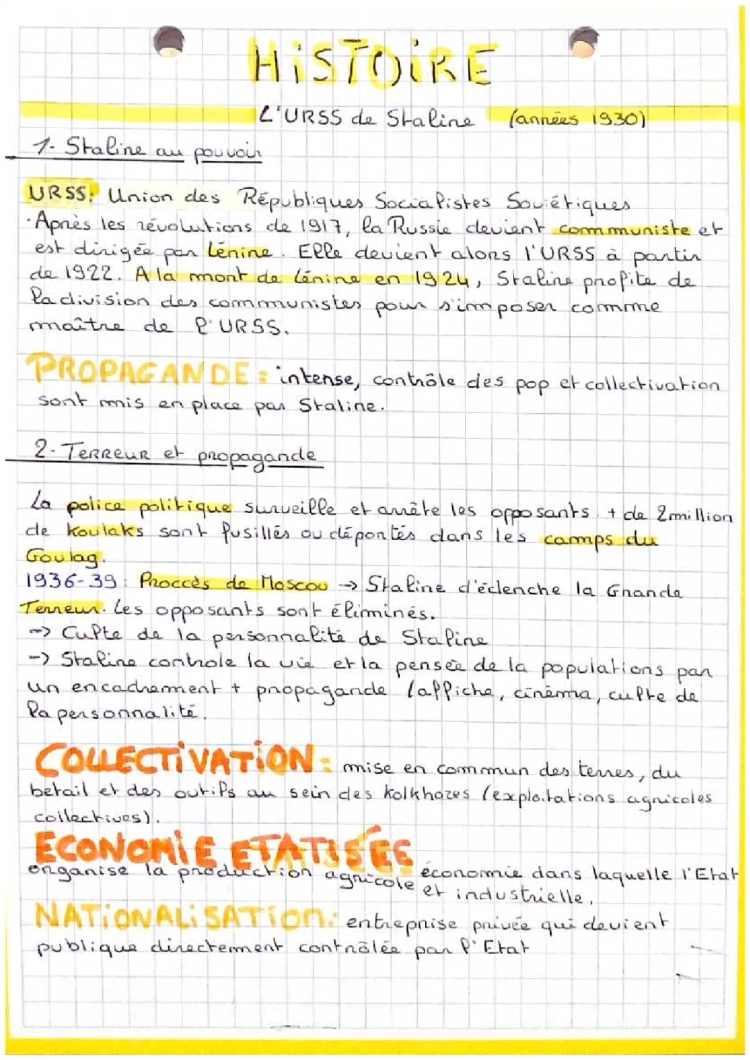 HiSTOiRE
L'URSS de Staline (années 1930)
1- Staline au pouvoir
URSS: Union des Républiques Socialistes Soviétiques
· Après les révolutions de 1917, la Russie devient communiste et
est dirigée par Lénine. Elle devient alors l'URSS à partir
de 1922. A la mort de Lénine en 1924, Staline profite de
la division des communistes pour s'imposer comme
maître de l'URSS.
PROPAGANDE: intense, contrôle des pop et collectivation
sont mis en place par Staline.
2- TERREUR et propagande
La police politique surveille et arrête les opposants. + de 2million
de koulaks sont fusillés ou déportés dans les camps du
Goulag.
1936-39: Proccès de Moscou -> Staline d'éclenche la Grande
Terreur. Les opposants sont éliminés.
-> Culte de la personnalité de Staline
-> Staline controle la vie et la pensée de la populations par
un encadrement + propagande (affiche, cinéma, culte de
la personnalité.
COLLECTiVATiON: mise en commun des terres, du
betail et des outils au sein des kolkhozes (exploitations agricoles
collectives).
ECONOMiE ETATiSÉES économie dans laquelle l'Etat
organise la production agricole et industrielle.
NATiONALiSATiON: entreprise privée qui devient
publique directement contrôlée par l'Etat